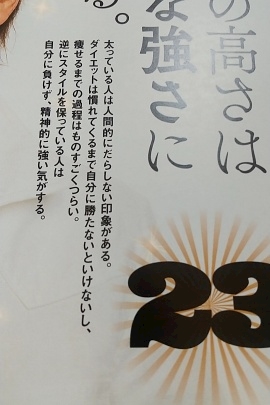 の高さは
な強さに
る。
太っている人は人間的にだらしない印象がある。
ダイエットは慣れてくるまで自分に勝たないといけないし、
痩せるまでの過程はものすごくつらい。
逆にスタイルを保っている人は
自分に負けず、精神的に強い気がする。
23